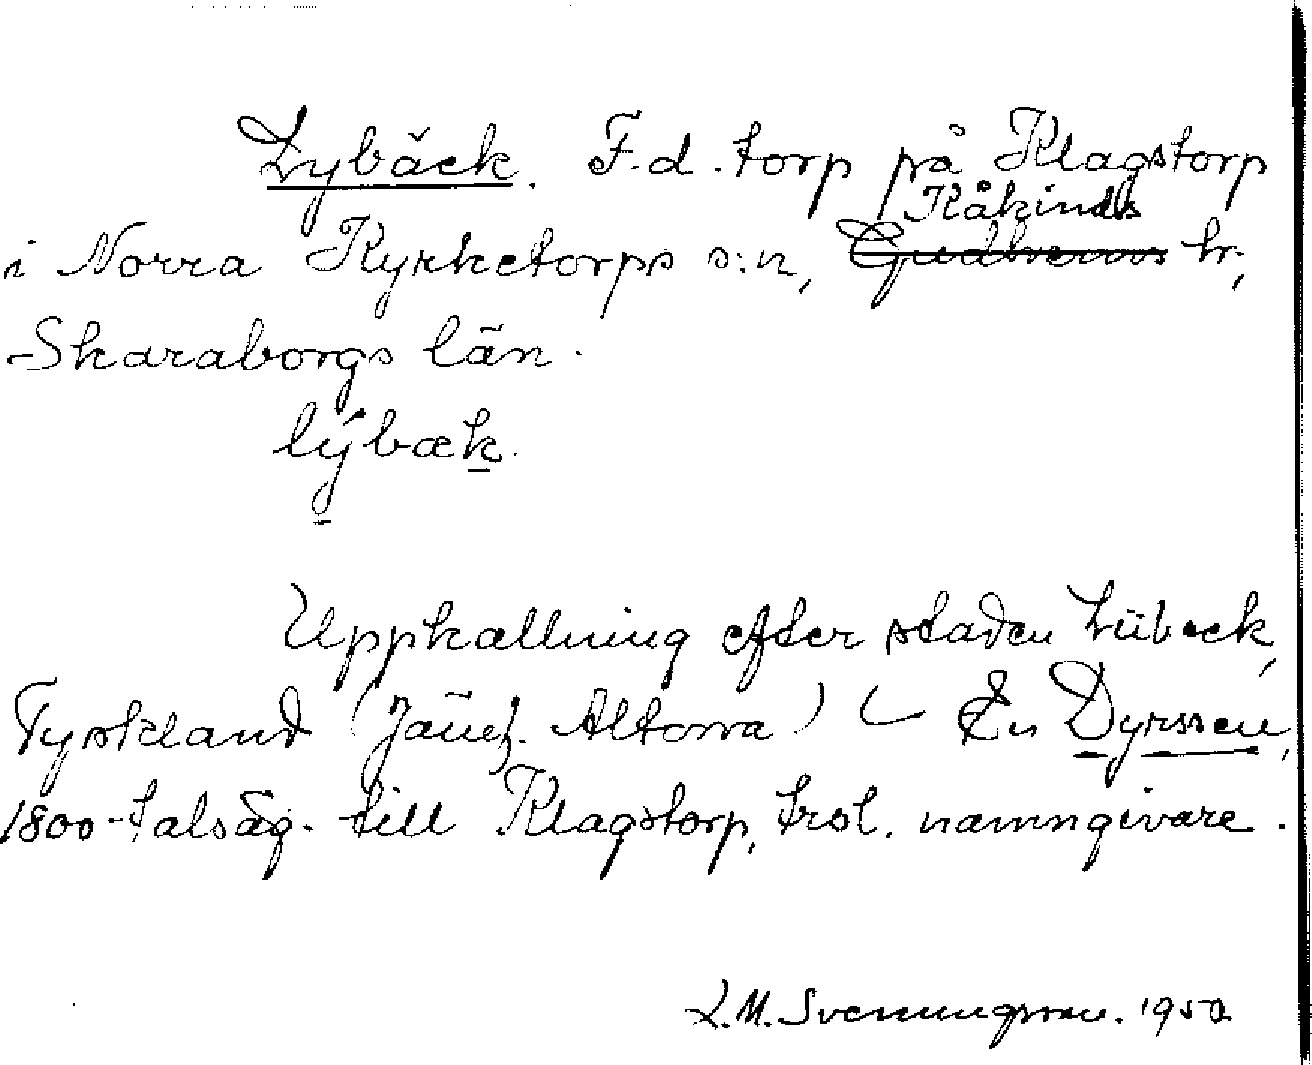 Lybäck. F.d. torp på Klagstorp
Kåkinds
i Norra Kyrketorps s:n, Gudhems hr,
Skaraborgs län.
lýbæk.
Uppkallning efter staden Lübeck,
Tyskland (Jämf. Altona) En Dyrssen,
1800-talsäg. till Klagstorp, trol. namngivare.
L.M. Svenungsson. 1950